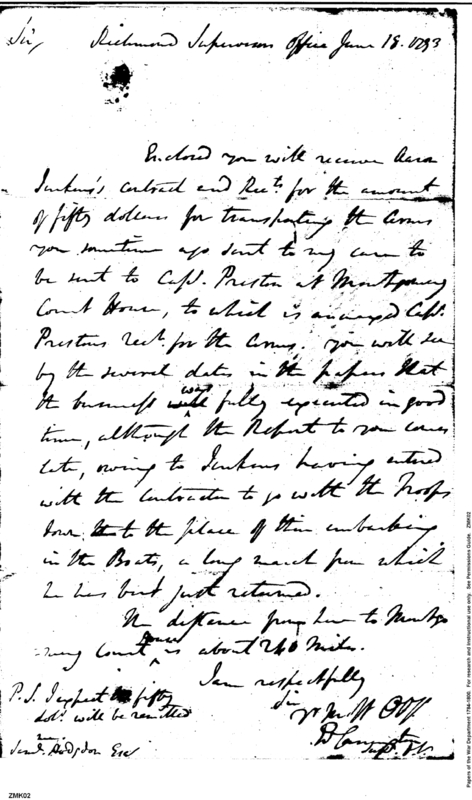 Sir, Richmond Supervisors Office June 18. 1793
Enclosed you will receive Aaron
Jenkins's contract and Rects. for the amount
of fifty dolears for transporting the Arms
you sometime ago sent to my care to
be sent to Capt. Preston at Montgomery
Court House, to which is annexed Capt.
Prestons rect. for the Arms. you will see
by the several dates in the papers that
the business was fully executed in good
time, although the Report to you comes
late, owing to Jenkins having entered
with the Contractor to go with the Troops
down to the place of their embarking
in the Boats, a long march from which
he has but just returned.
The distance from here to Montgo
mery Court House is about 240 Miles.
I am respectfully
P.S. I expect fifty
Sir
dolrs. will be remitted
Yr Most Obt
Saml. Hodgdon Esq
D Carrington
Supr.
ZMK02
Papers of the War Department 1784-1800. For research and instructional use only. See Permissions Guide. ZMK02